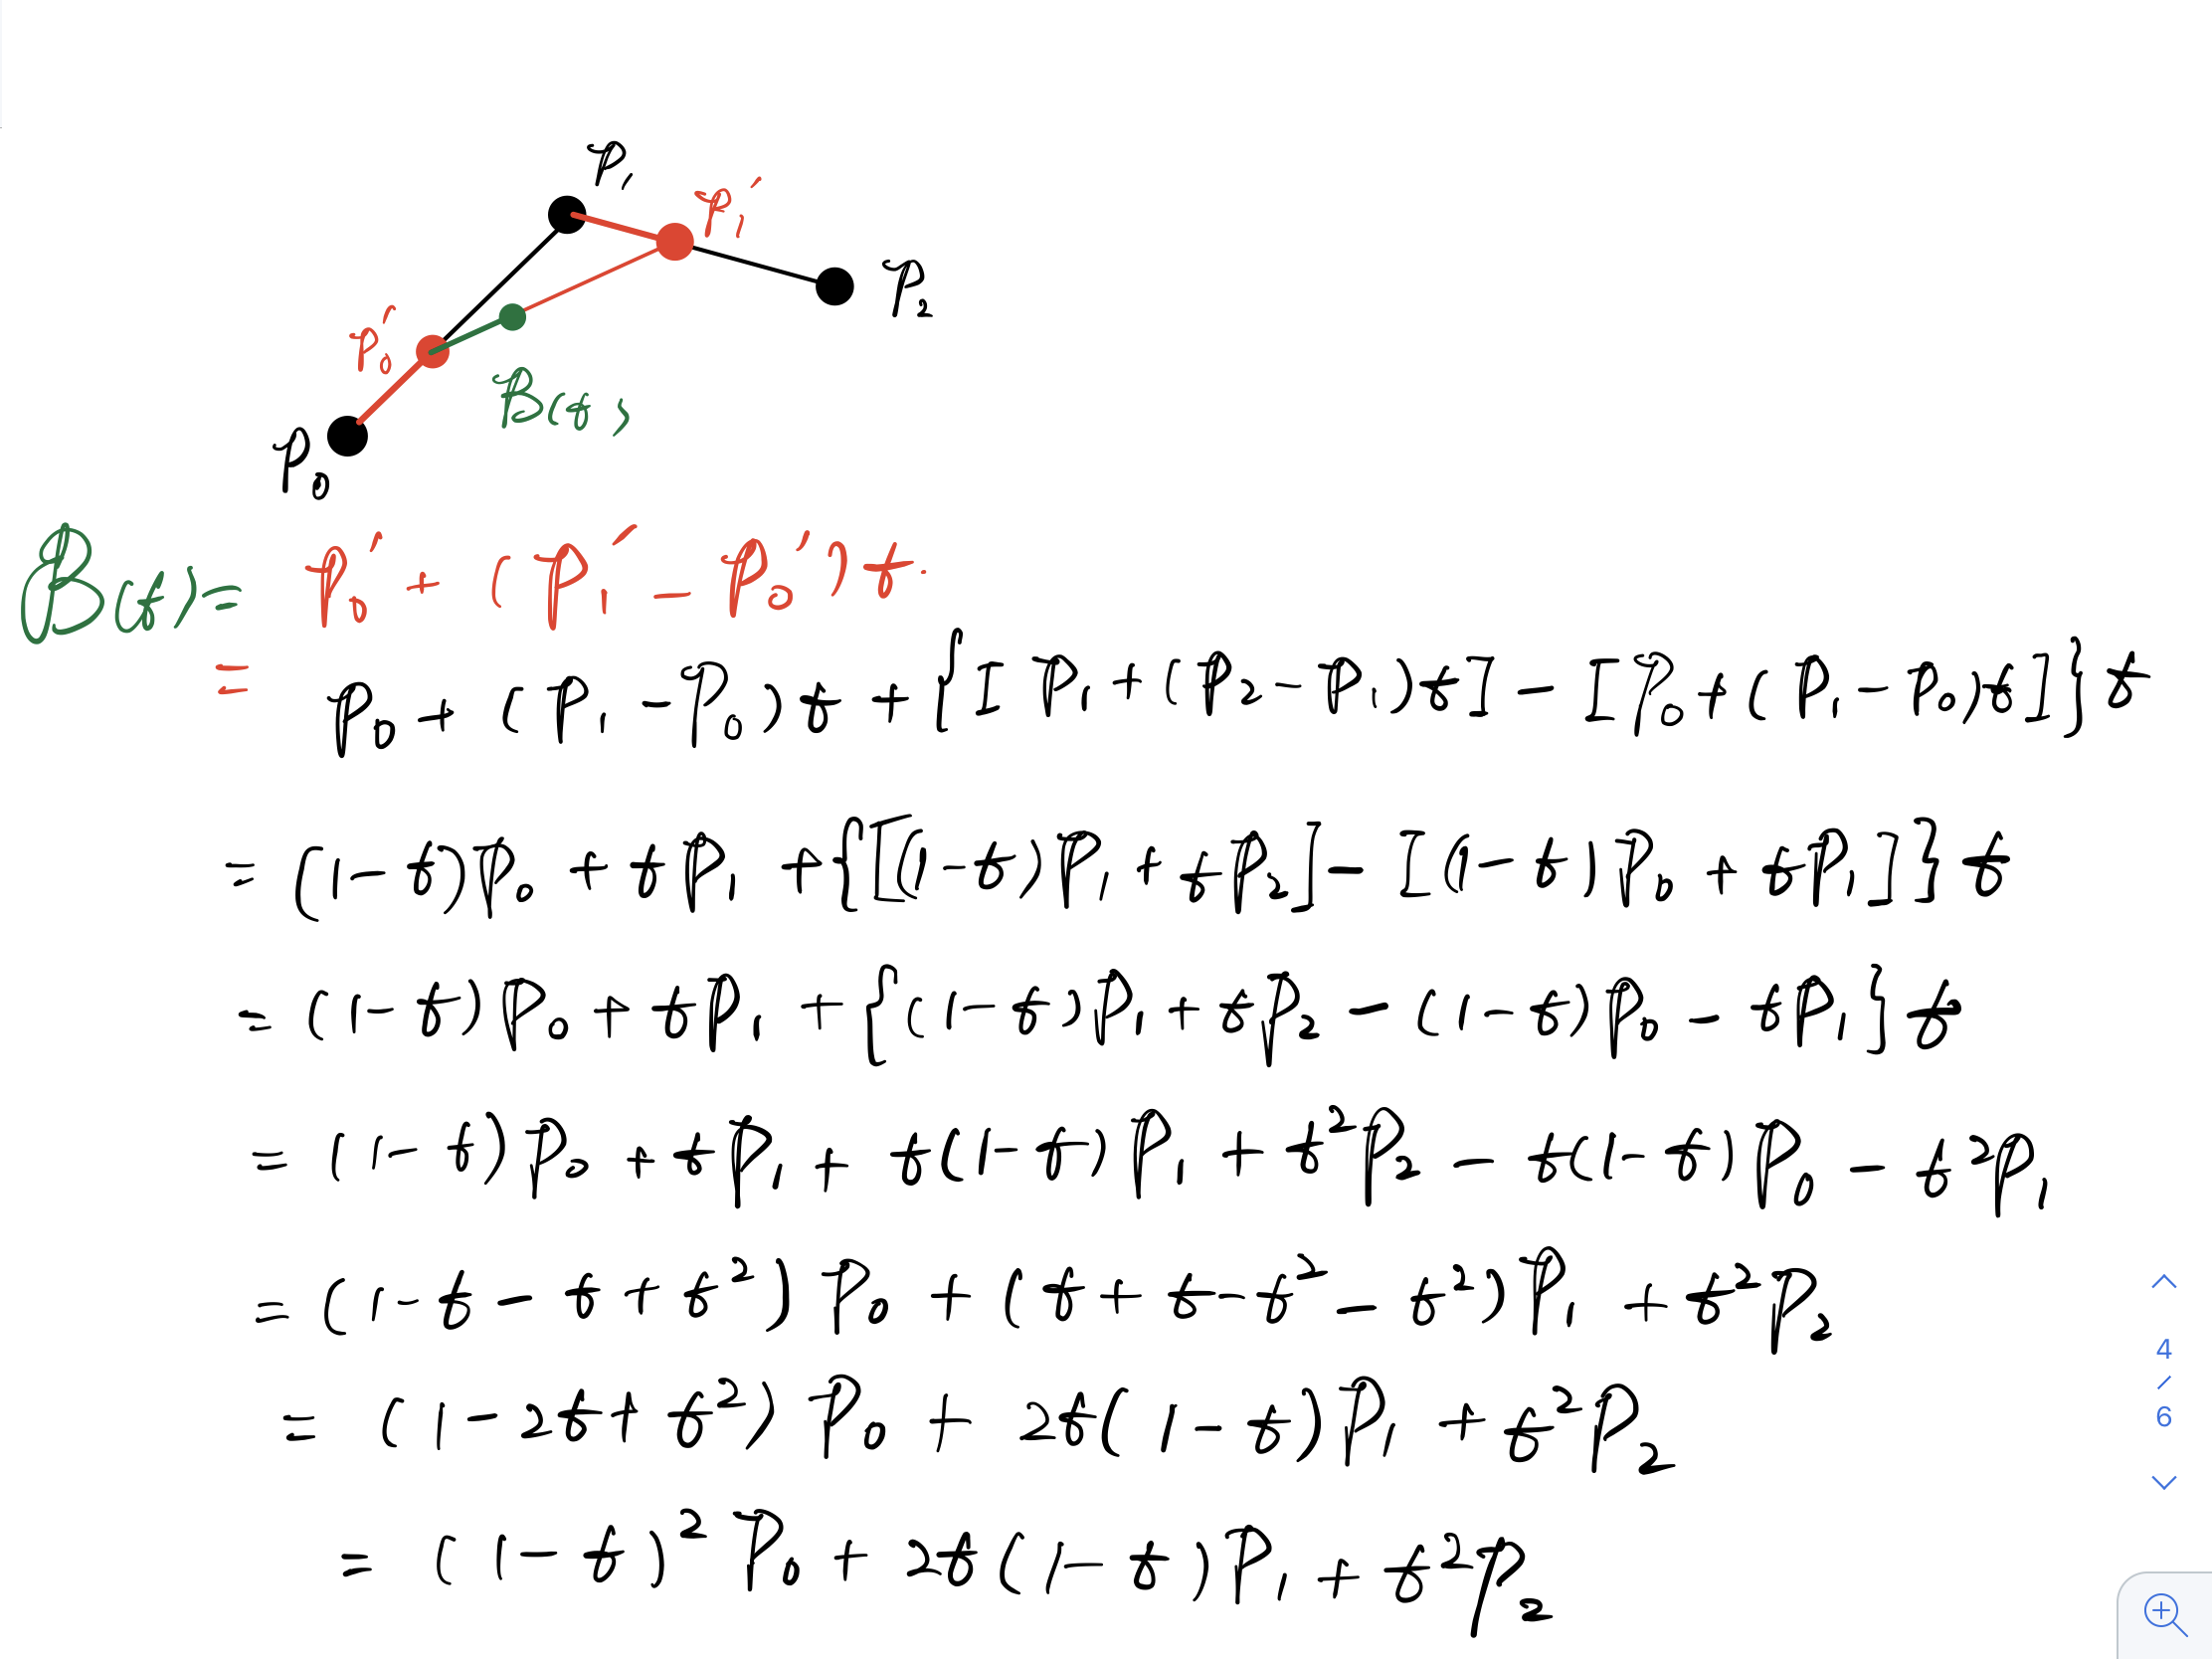 P₁
P₁′
P₂
P₀′
B(t)
P₀
B(t) = P₀′ + (P₁′ − P₀′)t.
= P₀ + (P₁ − P₀)t + {[P₁ + (P₂ − P₁)t] − [P₀ + (P₁ − P₀)t]}t
= (1 − t)P₀ + tP₁ + {[(1 − t)P₁ + tP₂] − [(1 − t)P₀ + tP₁]}t
= (1 − t)P₀ + tP₁ + [(1 − t)P₁ + tP₂ − (1 − t)P₀ − tP₁]t
= (1 − t)P₀ + tP₁ + t(1 − t)P₁ + t²P₂ − t(1 − t)P₀ − t²P₁
= (1 − t − t + t²)P₀ + (t + t − t² − t²)P₁ + t²P₂
= (1 − 2t + t²)P₀ + 2t(1 − t)P₁ + t²P₂
= (1 − t)²P₀ + 2t(1 − t)P₁ + t²P₂
4
/
6